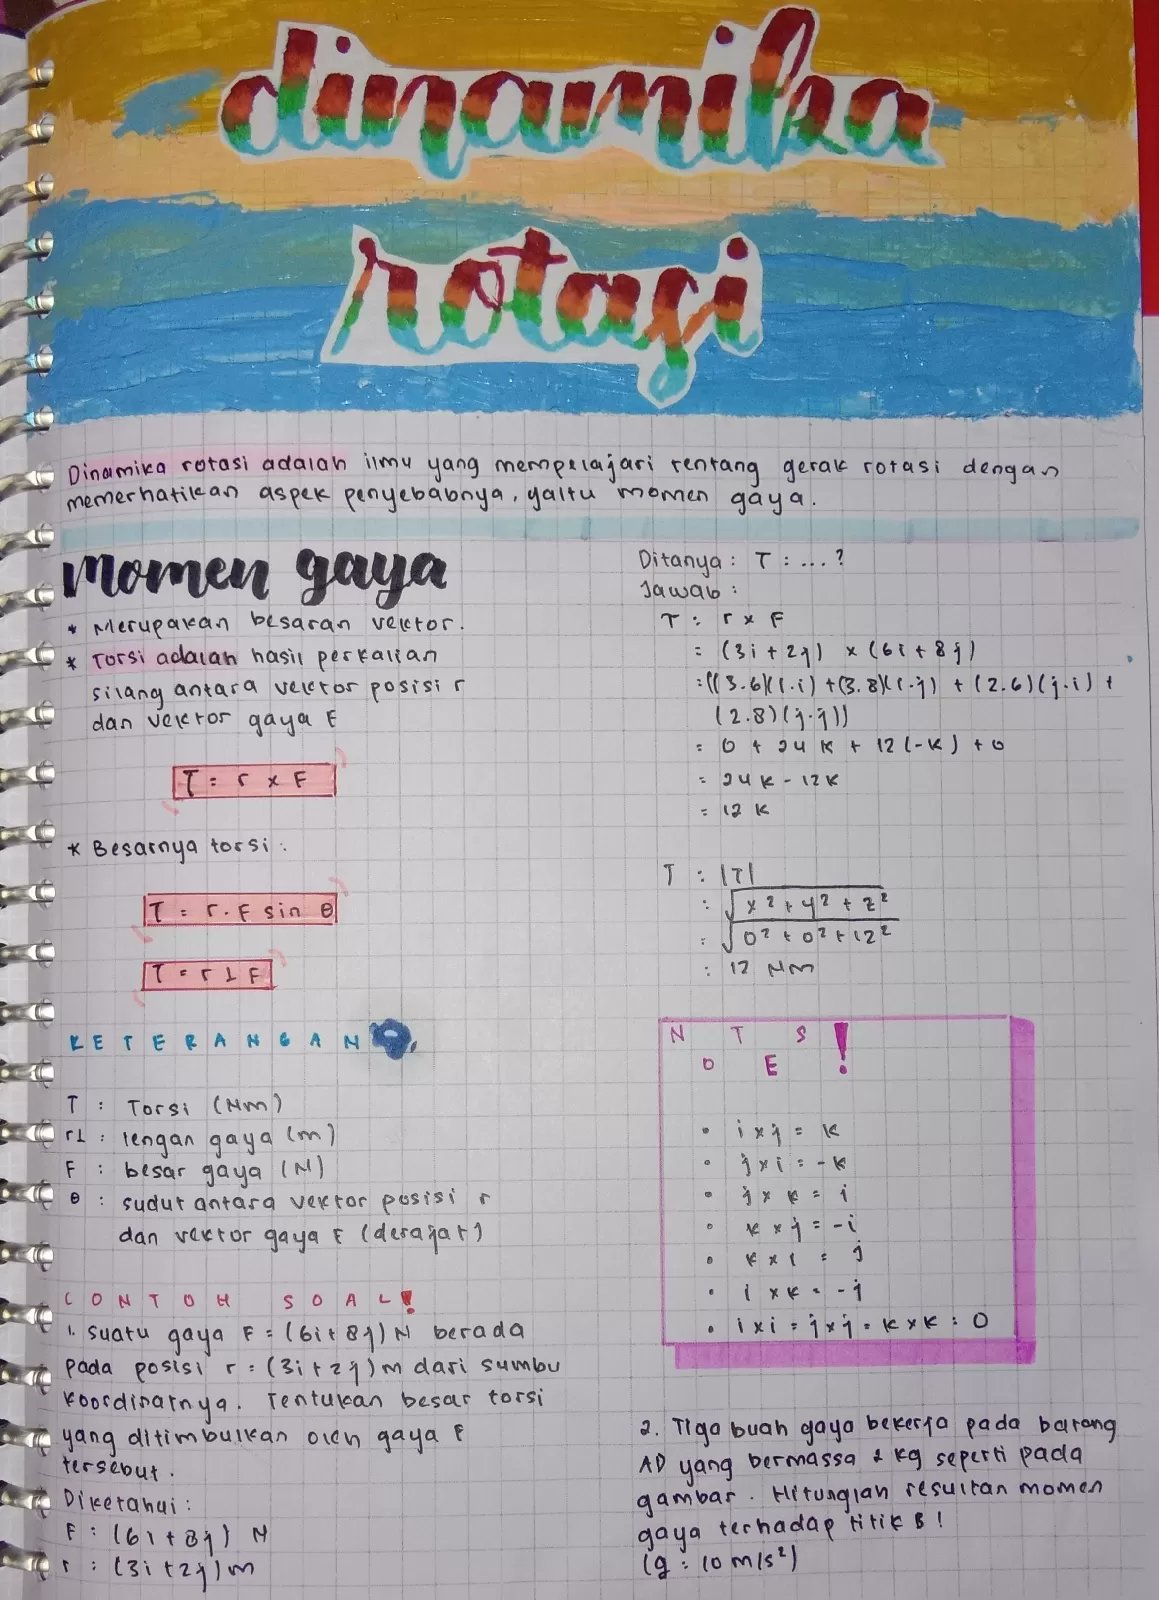 dinamika
rotasi
Dinamika rotasi adalah ilmu yang mempelajari tentang gerak rotasi dengan
memerhatikan aspek penyebabnya, yaitu momen gaya.
momen gaya
* Merupakan besaran vektor.
* Torsi adalah hasil perkalian
silang antara vektor posisi r
dan vektor gaya F
T = r x F
* Besarnya torsi :
T = r . F sin θ
T = r⊥F
KETERANGAN
T : Torsi (Nm)
r⊥ : lengan gaya (m)
F : besar gaya (N)
θ : sudut antara vektor posisi r
dan vektor gaya F (derajat)
CONTOH SOAL!
1. Suatu gaya F = (6i + 8j) N berada
pada posisi r = (3i + 2j) m dari sumbu
koordinatnya. Tentukan besar torsi
yang ditimbulkan oleh gaya F
tersebut.
Diketahui :
F : (6i + 8j) N
r : (3i + 2j) m
Ditanya : T : ... ?
Jawab :
T : r x F
= (3i + 2j) x (6i + 8j)
= ((3.6)(i.i) + (3.8)(i.j) + (2.6)(j.i) +
(2.8)(j.j))
= 0 + 24k + 12(-k) + 0
= 24k - 12k
= 12 k
T : |T|
: √x² + y² + z²
= √0² + 0² + 12²
: 12 Nm
NOTES!
• i x j = k
• j x i = -k
• j x k = i
• k x j = -i
• k x i = j
• i x k = -j
• i x i = j x j = k x k = 0
2. Tiga buah gaya bekerja pada batang
AD yang bermassa 2 kg seperti pada
gambar. Hitunglah resultan momen
gaya terhadap titik B !
(g = 10 m/s²)